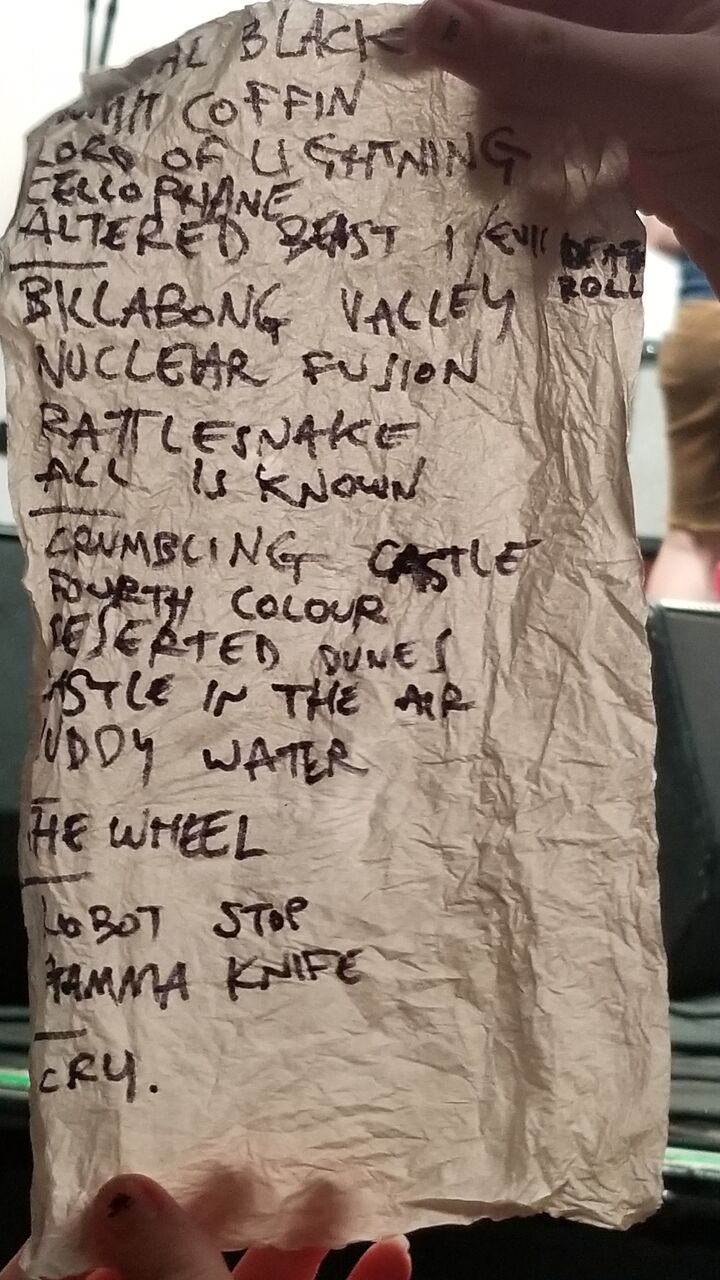 BLACK
COFFIN
LORD OF LIGHTNING
CELLOPHANE
ALTERED BEAST 1 / EVIL DEATH ROLL
BILLABONG VALLEY
NUCLEAR FUSION
RATTLESNAKE
ALL IS KNOWN
CRUMBLING CASTLE
FOURTH COLOUR
DESERTED DUNES
ASTLE IN THE AIR
UDDY WATER
THE WHEEL
ROBOT STOP
GAMMA KNIFE
CRY.